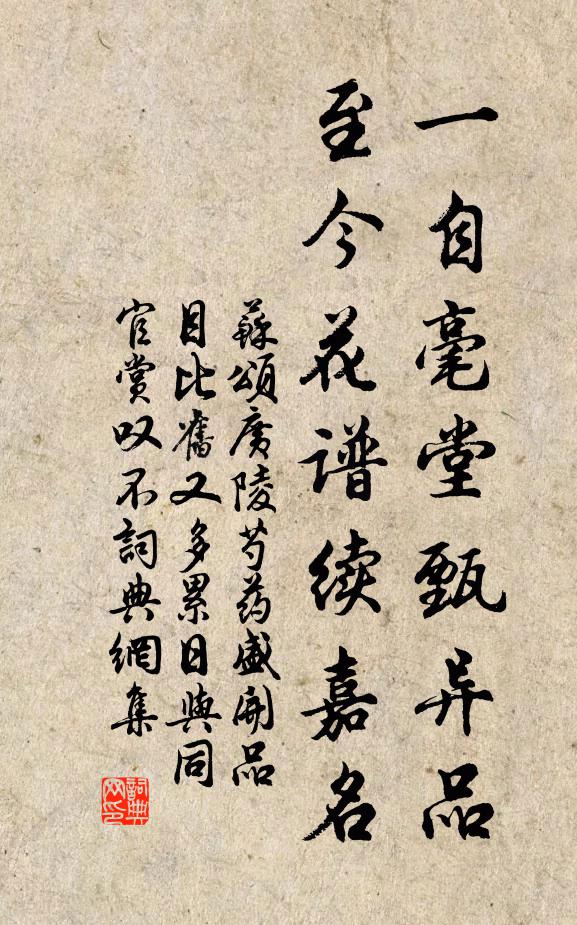 一自毫堂甄异品
至今花谱续嘉名
蘇頌廣陵芍药盛開品
目比舊又多累日與同
官賞叹不詞典網集
詞典
网印